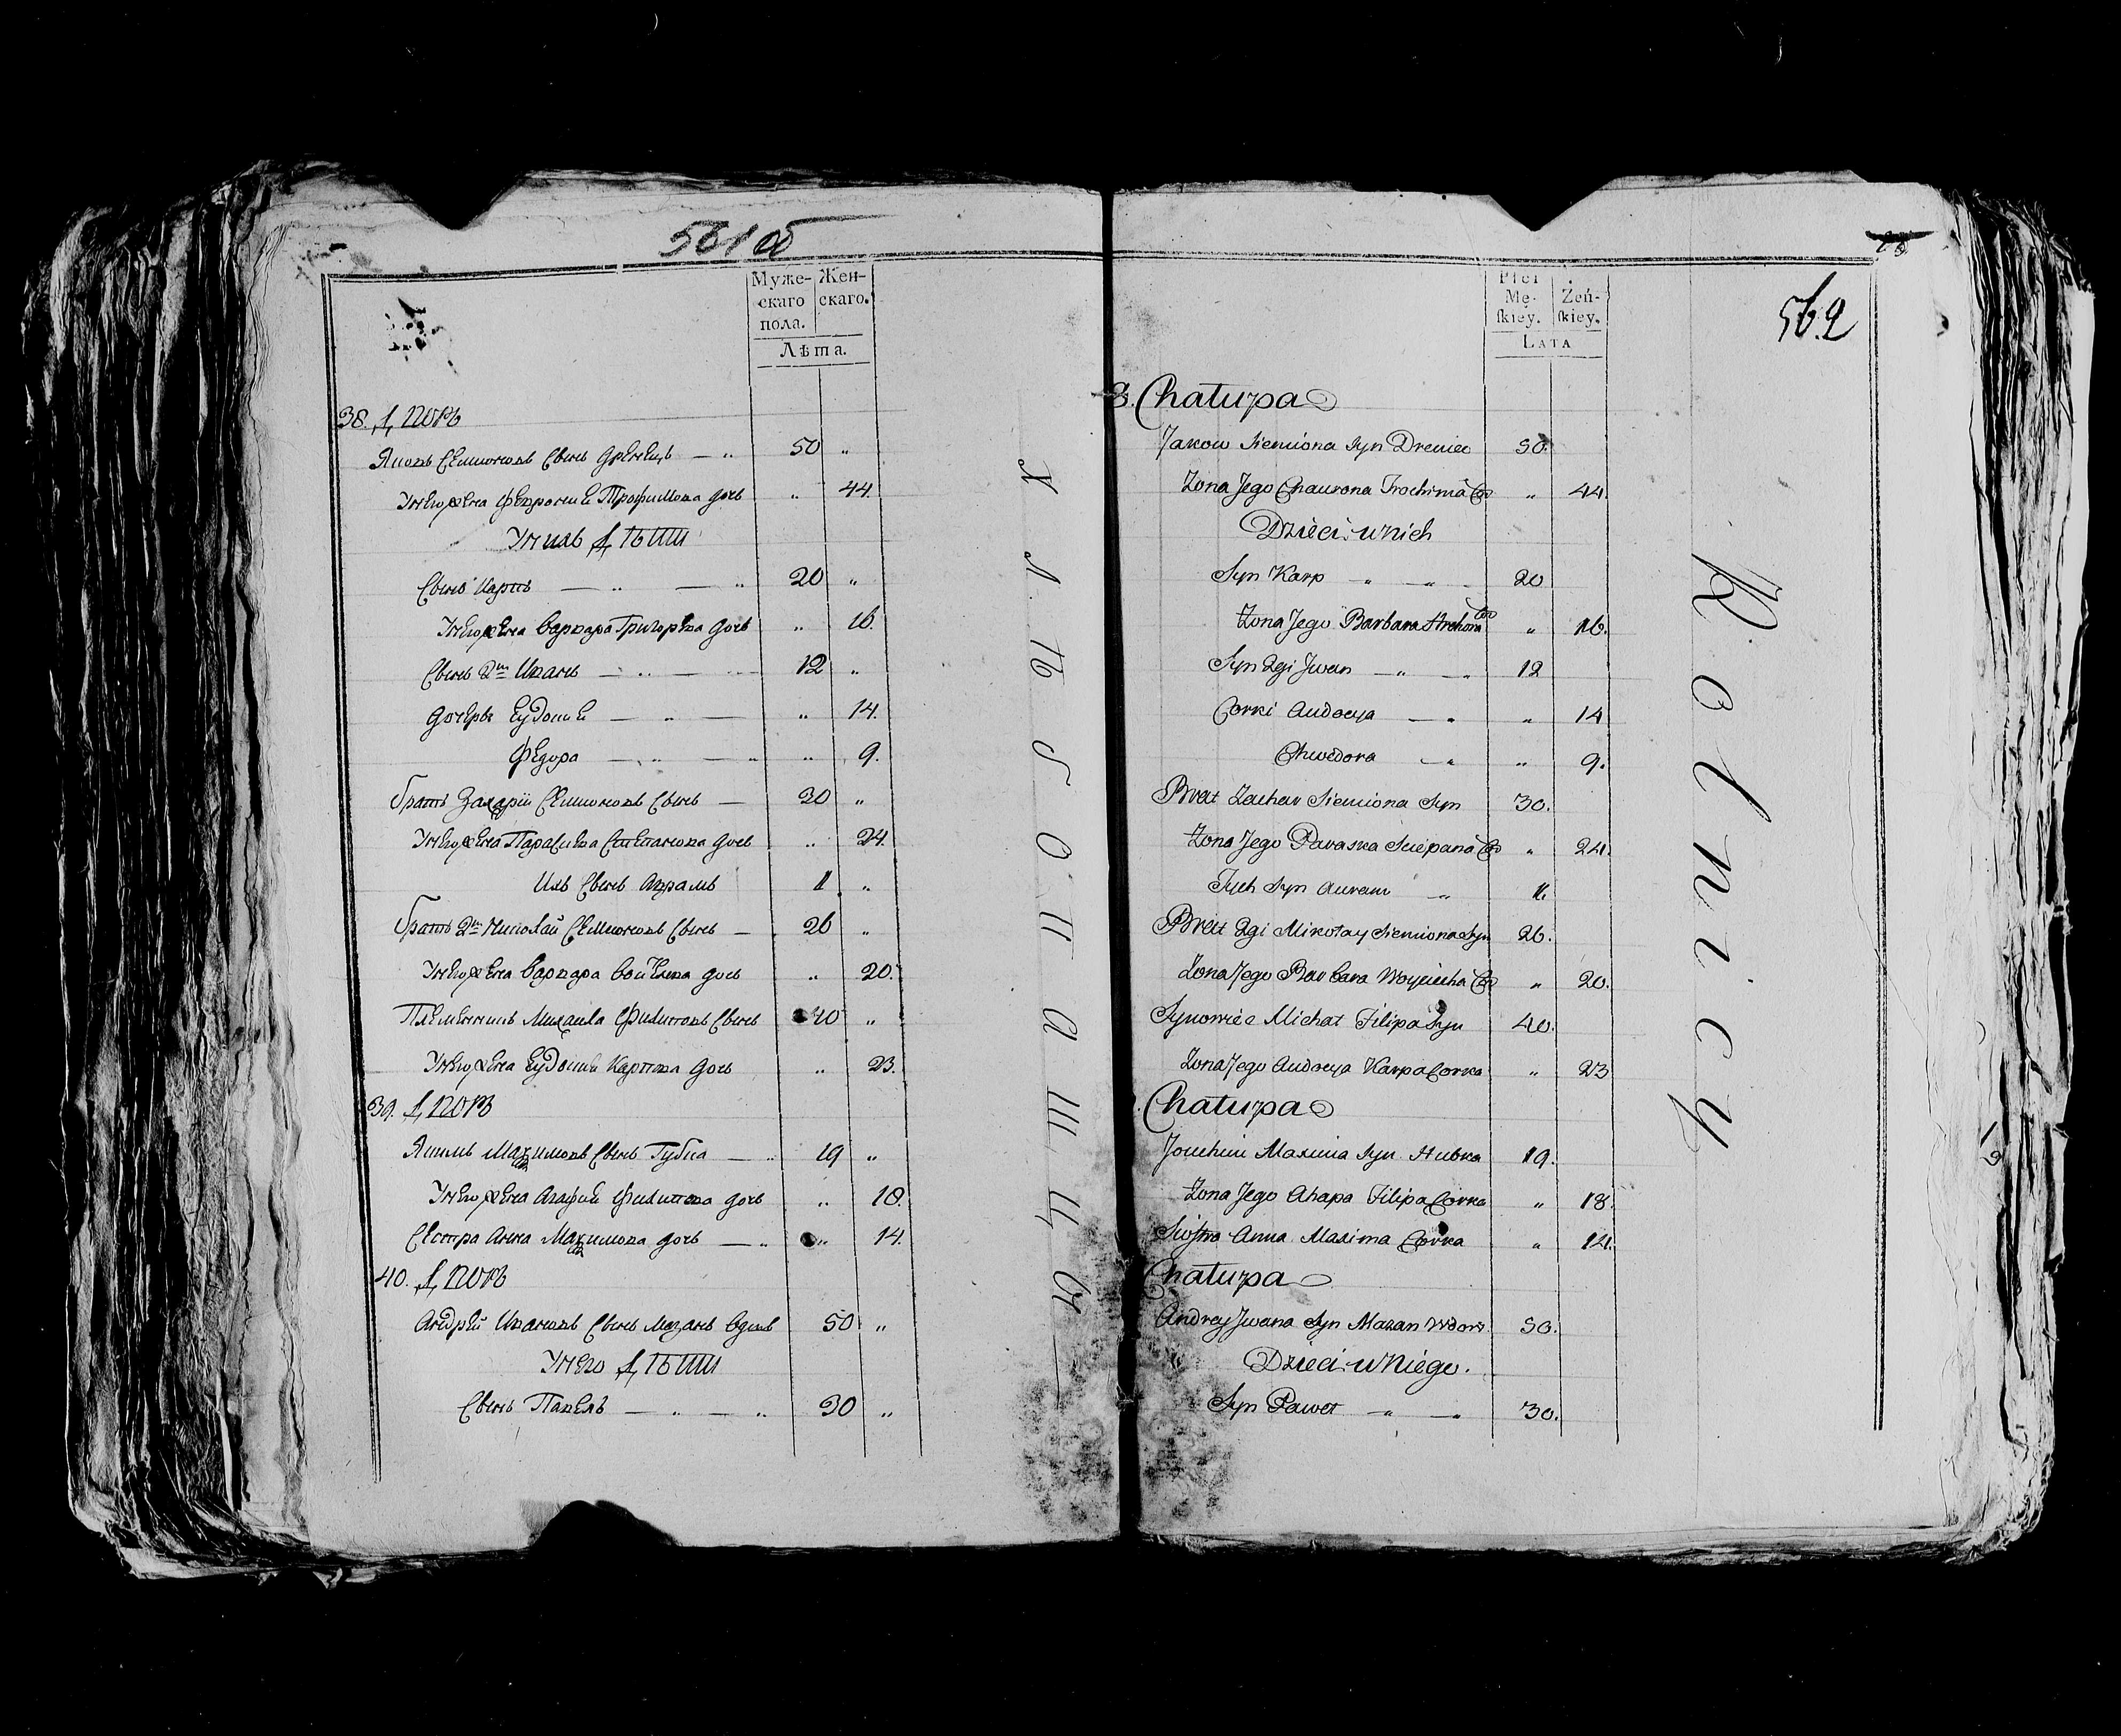 561 об
Муже-
скаго
пола.
Жен-
скаго.
Лѣта.
38. Дворъ
Яковъ Семіоновъ Сынъ Дренецъ — „ 50 „
У него жена Февронія Трофимова дочь „ 44.
У нихъ Дѣти
Сынъ Карпъ — „ — „ 20 „
У него жена Варвара Григорьева дочь „ 16.
Сынъ 2й Иванъ — „ — 12 „
Дочери Еудокия — „ — „ 14.
Федора — „ — „ „ 9.
Братъ Захарій Семіоновъ Сынъ — 30 „
У него жена Парасцева Степанова дочь „ 24.
Ихъ Сынъ Аврамъ 1 „
Братъ 2й Николай Семіоновъ Сынъ — 26 „
У него жена Варвара Войцехова дочь „ 20.
Племенникъ Михаила Филиповъ Сынъ 40 „
У него жена Еудокия Карпова дочь „ 23.
39. Дворъ
Якимъ Махимовъ Сынъ Губка — „ 19 „
У него жена Агафия Филипова дочь „ 18.
Сестра Анна Махимова дочь — „ „ 14.
40. Дворъ
Андрей Ивановъ Сынъ Мазанъ вдовъ 50 „
У него Дѣти
Сынъ Павелъ — „ — „ 30 „
562
Płci
Mę-
skiey.
Żeń-
skiey.
Lata
8. Chałupa
Jakow Siemiona Syn Dreniec 50.
Żona Jego Chaurona Trochima Cor „ 44
Dzieci u Nich
Syn Karp — „ — „ 20
Żona Jego Barbara Hrehora Cor „ 16.
Syn 2gi Jwan — „ — „ 12
Corki Audocya — „ „ 14
Chwedora — „ „ 9.
Brat Zachar Siemiona Syn 30.
Żona Jego Paraska Sciepana Cor „ 24.
Jych Syn Auram „ 1.
Brat 2gi Mikołay Siemiona Syn 26.
Żona Jego Barbara Woyciecha Cor „ 20.
Synowiec Michał Filipa Syn 40.
Żona Jego Audocya Karpa Corka „ 23
Chałupa
Jouchim Maxima Syn Hubka 19.
Żona Jego Ahapa Filipa Corka „ 18.
Siostra Anna Maxima Corka „ 14.
Chałupa
Andrey Jwana Syn Mazan Wdow. 50.
Dzieci u Niego.
Syn Paweł — „ — „ 30.
Rolnicy